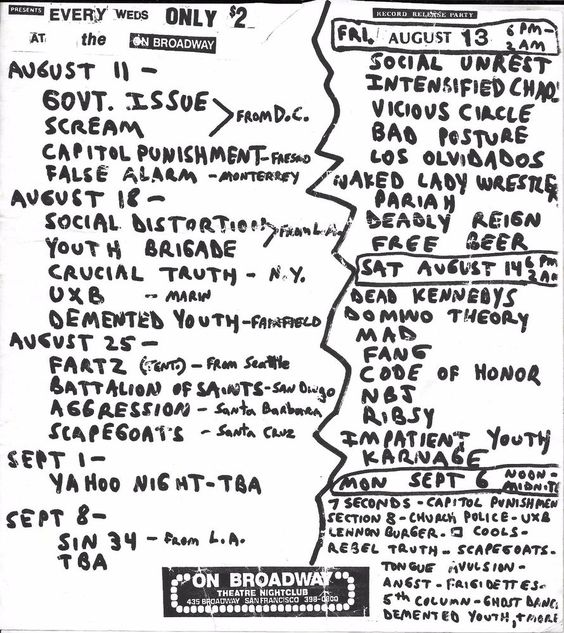 PRESENTS EVERY WEDS ONLY $2
AT the ON BROADWAY
AUGUST 11 -
GOVT. ISSUE
SCREAM
FROM D.C.
CAPITOL PUNISHMENT - FRESNO
FALSE ALARM - MONTERREY
AUGUST 18 -
SOCIAL DISTORTION
YOUTH BRIGADE
FROM L.A.
CRUCIAL TRUTH - N.Y.
UXB - MARIN
DEMENTED YOUTH - FAIRFIELD
AUGUST 25 -
FARTZ (TENT.) - From Seattle
BATTALION OF SAINTS - SAN DIEGO
AGGRESSION - Santa Barbara
SCAPEGOATS - Santa Cruz
SEPT 1 -
YAHOO NIGHT - TBA
SEPT 8 -
SIN 34 - From L.A.
TBA
RECORD RELEASE PARTY
FRI. AUGUST 13 6 PM -
2 AM
SOCIAL UNREST
INTENSIFIED CHAO
VICIOUS CIRCLE
BAD POSTURE
LOS OLVIDADOS
NAKED LADY WRESTLE
PARIAH
DEADLY REIGN
FREE BEER
SAT AUGUST 14 6 PM
2 AM
DEAD KENNEDYS
DOMINO THEORY
MAD
FANG
CODE OF HONOR
NBJ
RIBSY
IMPATIENT YOUTH
KARNAGE
MON SEPT 6 NOON -
MIDNITE
7 SECONDS - CAPITOL PUNISHMEN
SECTION 8 - CHURCH POLICE - UXB
LENNON BURGER - COOLS -
REBEL TRUTH - SCAPEGOATS -
TONGUE AVULSION -
ANGST - FRIGIDETTES -
5th COLUMN - GHOST DANCE
DEMENTED YOUTH, + MORE
ON BROADWAY
THEATRE NIGHTCLUB
435 BROADWAY SAN FRANCISCO 398-0800